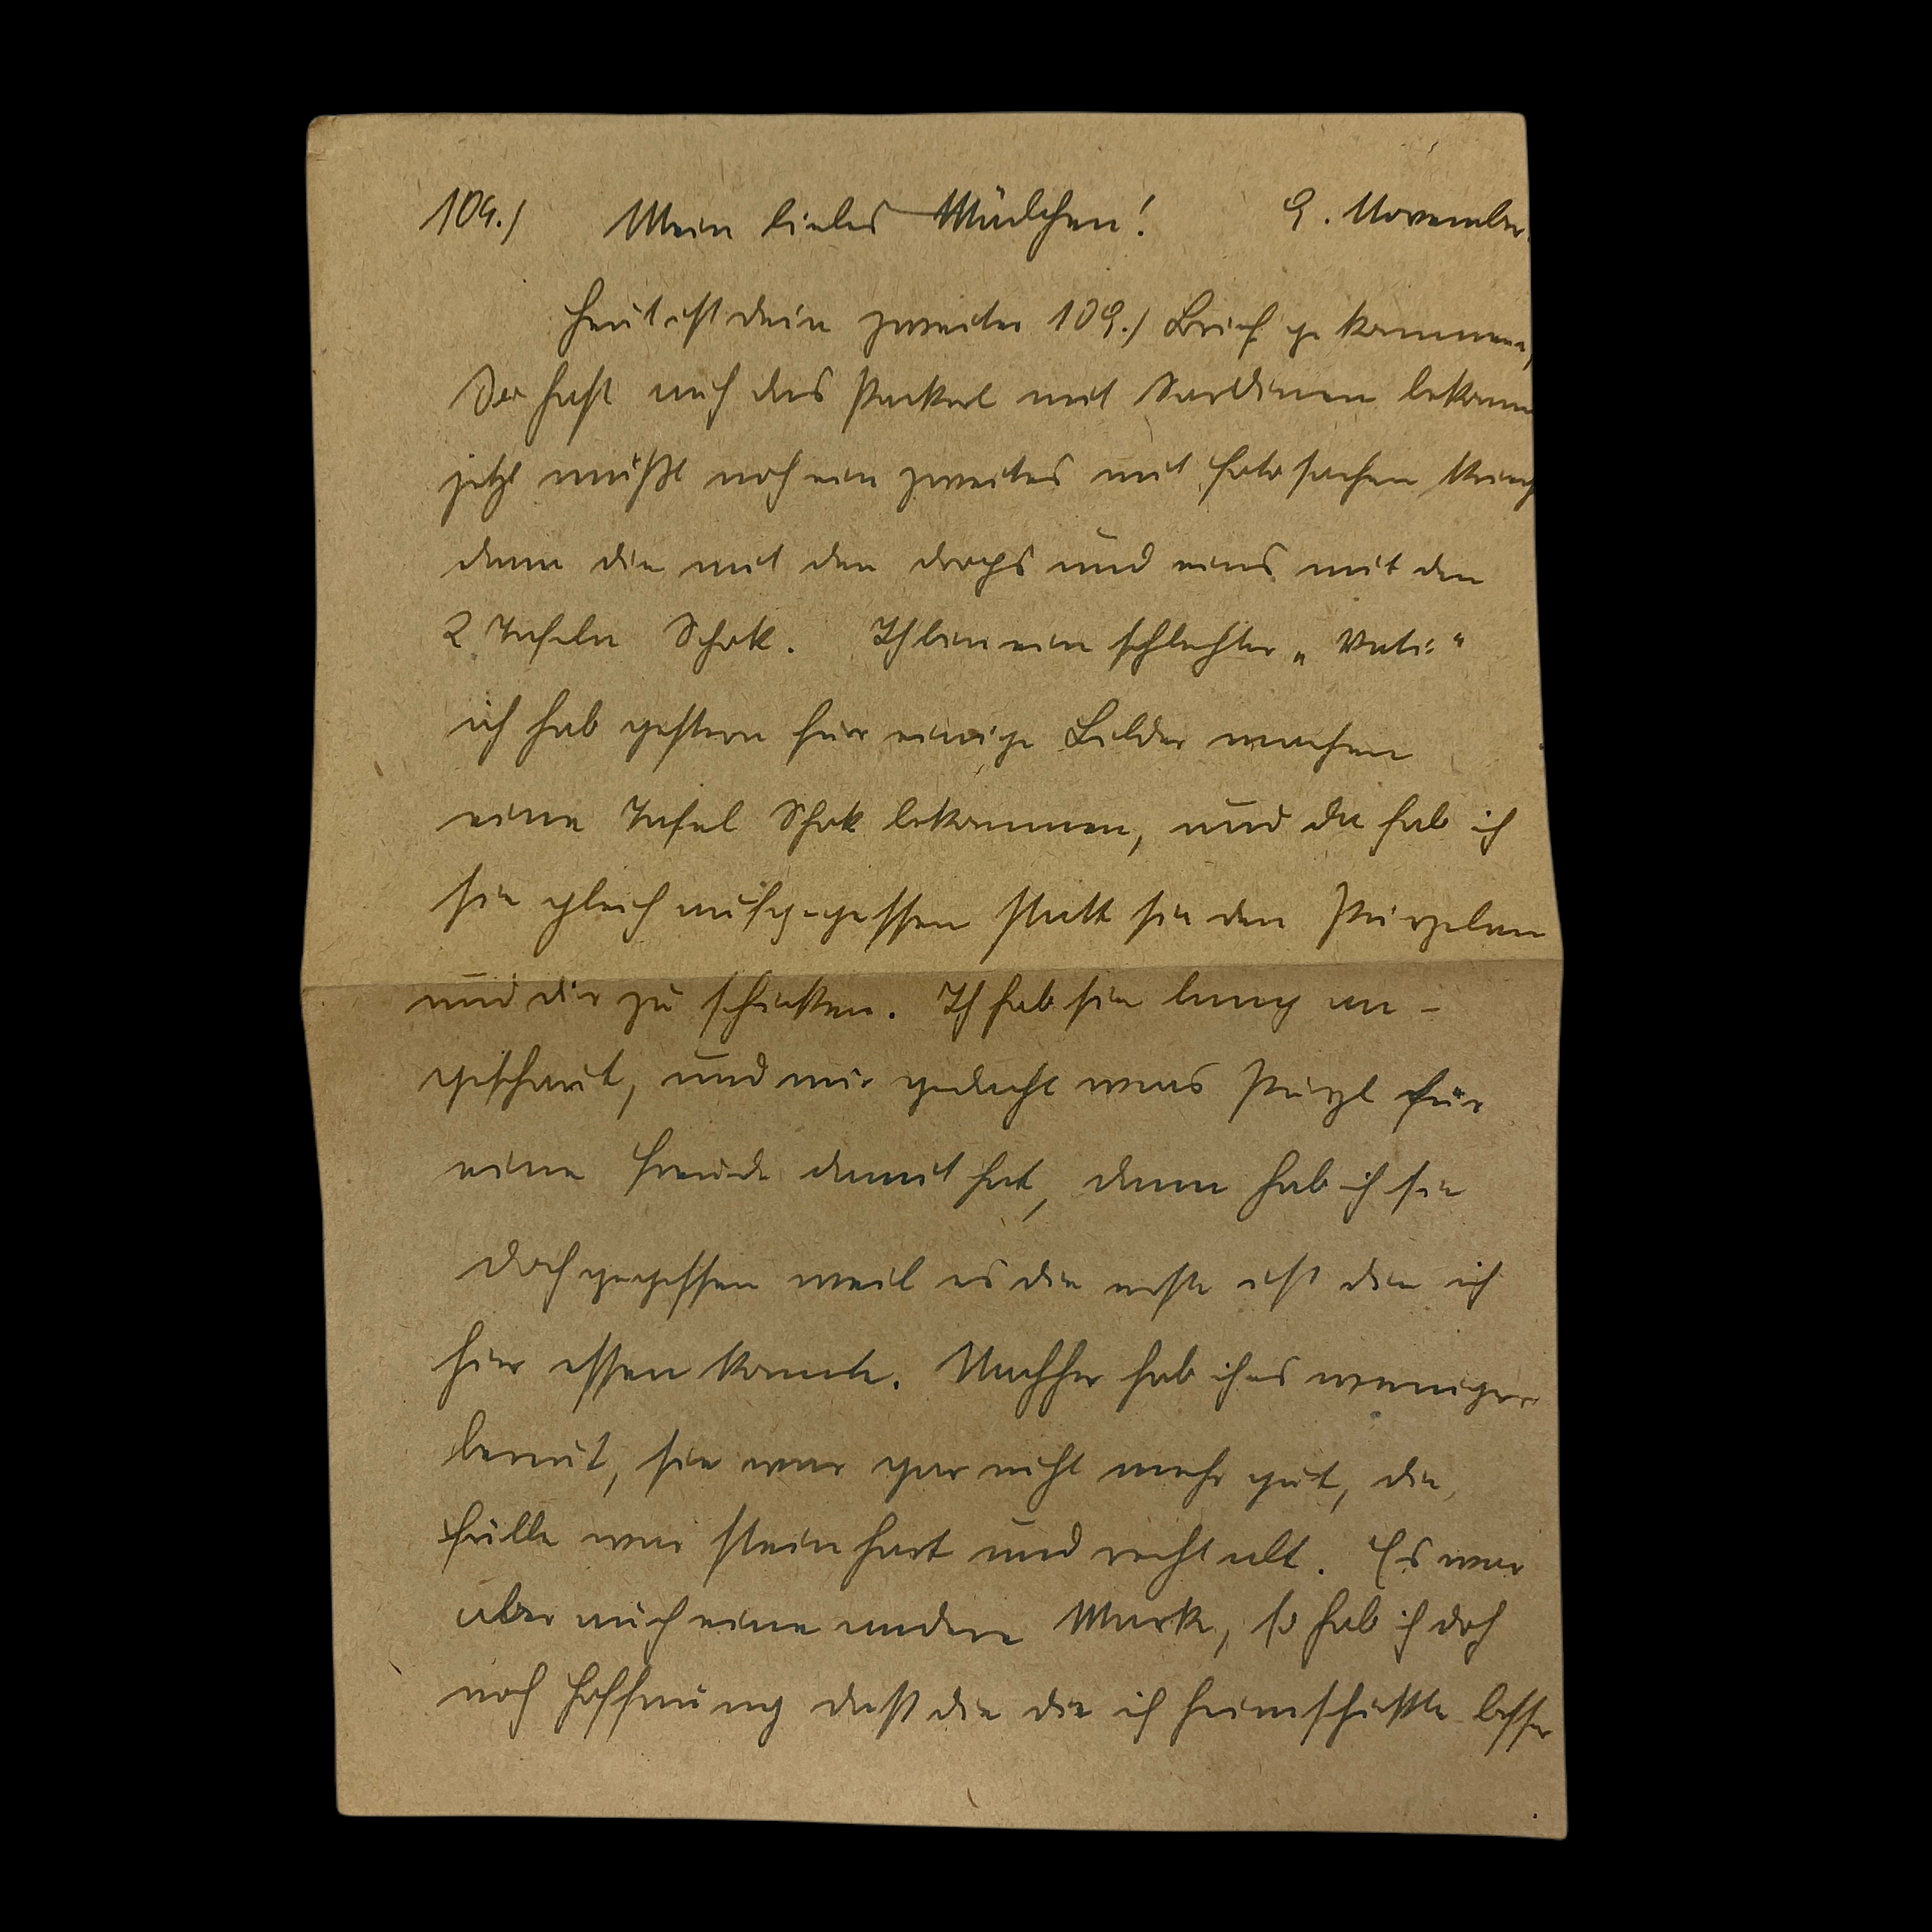 109.) Mein liebes Mädchen! 9. November
Heut ist dein zweiter 109.) Brief gekommen,
Du hast auch das Packerl mit Sardinen bekomm
jetzt mußt noch ein zweites mit Fotosachen krieg
dann die mit den drops und eins mit den
2 Tafeln Schok. Ich bin ein schlechter „Vati"
ich hab gestern für einige Bilder machen
eine Tafel Schok bekommen, und da hab ich
sie gleich aufgegessen statt sie den Purzeln
und dir zu schicken. Ich hab sie lang an-
geschaut, und mir gedacht was Purzl für
eine Freude damit hat, dann hab ich sie
doch gegessen weil es die erste ist die ich
hier essen konnte. Nachher hab ich es weniger
bereut, sie war gar nicht mehr gut, die
Fülle war steinhart und recht alt. Es war
aber auch eine andere Mark, so hab ich doch
noch Hoffnung daß die die ich heimschickte besser